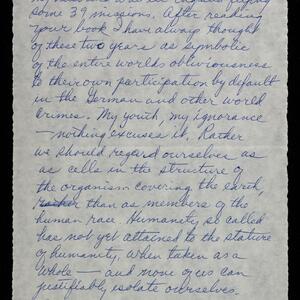 my husband was in England flying
some 39 missions. After reading
your book I have always thought
of these two years as symbolic
of the entire worlds obliviousness
to their own participation by default
in the German and other world
crimes. My youth, my ignorance
— nothing excuses it. Rather
we should regard ourselves as
as cells in the structure of
the organism covering the earth,
than as members of the
human race. Humanity so called
has not yet attained to the stature
of humanity, when taken as a
whole — and none of us can
justifiably isolate ourselves.